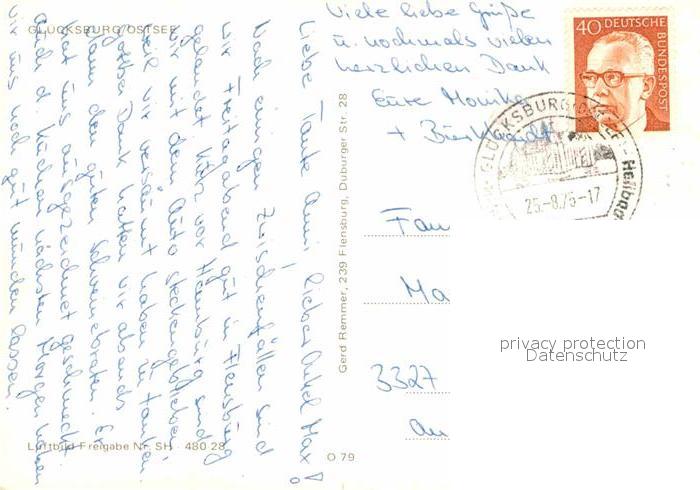 GLÜCKSBURG/OSTSEE
Liebe Tante Anni, lieber Onkel Max!
Nach einigen Zwischenfällen sind
wir Freitagabend gut in Flensburg
gelandet. Kurz vor Hamburg sind
wir mit dem Auto steckengeblieben,
weil wir versäumt haben zu tanken.
Gottbei Dank hatten wir abends
dann den guten Schweinebraten. Er
hat uns ausgezeichnet geschmeckt
auch d. Kuchen nächsten Morgen haben
wir uns noch gut munden lassen.
Viele liebe Grüße
u. nochmals vielen
herzlichen Dank
Eure Monika
+ Burkhardt
40 DEUTSCHE
BUNDESPOST
GLÜCKSBURG (OSTSEE) - Heilbad
25.-8.75-17
Fam
Ma
3327
au
Gerd Remmer, 239 Flensburg, Duburger Str. 28
Luftbild Freigabe Nr. SH - 480 28
O 79
privacy protection
Datenschutz